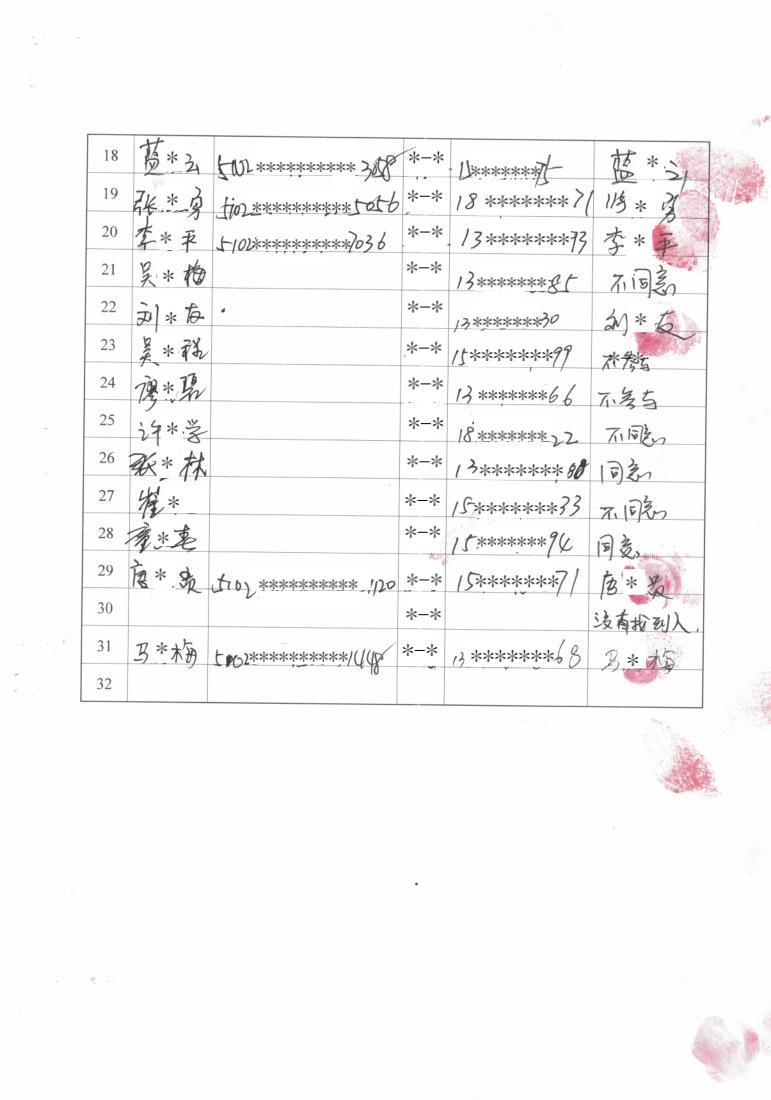 18 蓝*云 5102**********3058 *-* 13*******75 蓝*云
19 张*勇 5102**********5056 *-* 18*******71 张*勇
20 李*平 5102**********7036 *-* 13*******93 李*平
21 吴*梅 *-* 13*******85 不同意
22 刘*友 *-* 13*******30 刘*友
23 吴*禄 *-* 15*******99 不参与
24 廖*碧 *-* 13*******66 不参与
25 许*学 *-* 18*******22 不同意
26 张*林 *-* 13*******88 同意
27 崔* *-* 15*******33 不同意
28 童*春 *-* 15*******94 同意
29 唐*贵 5102**********1120 *-* 15*******71 唐*贵
30 *-* 没有找到人.
31 马*梅 5102**********1448 *-* 13*******68 马*梅
32